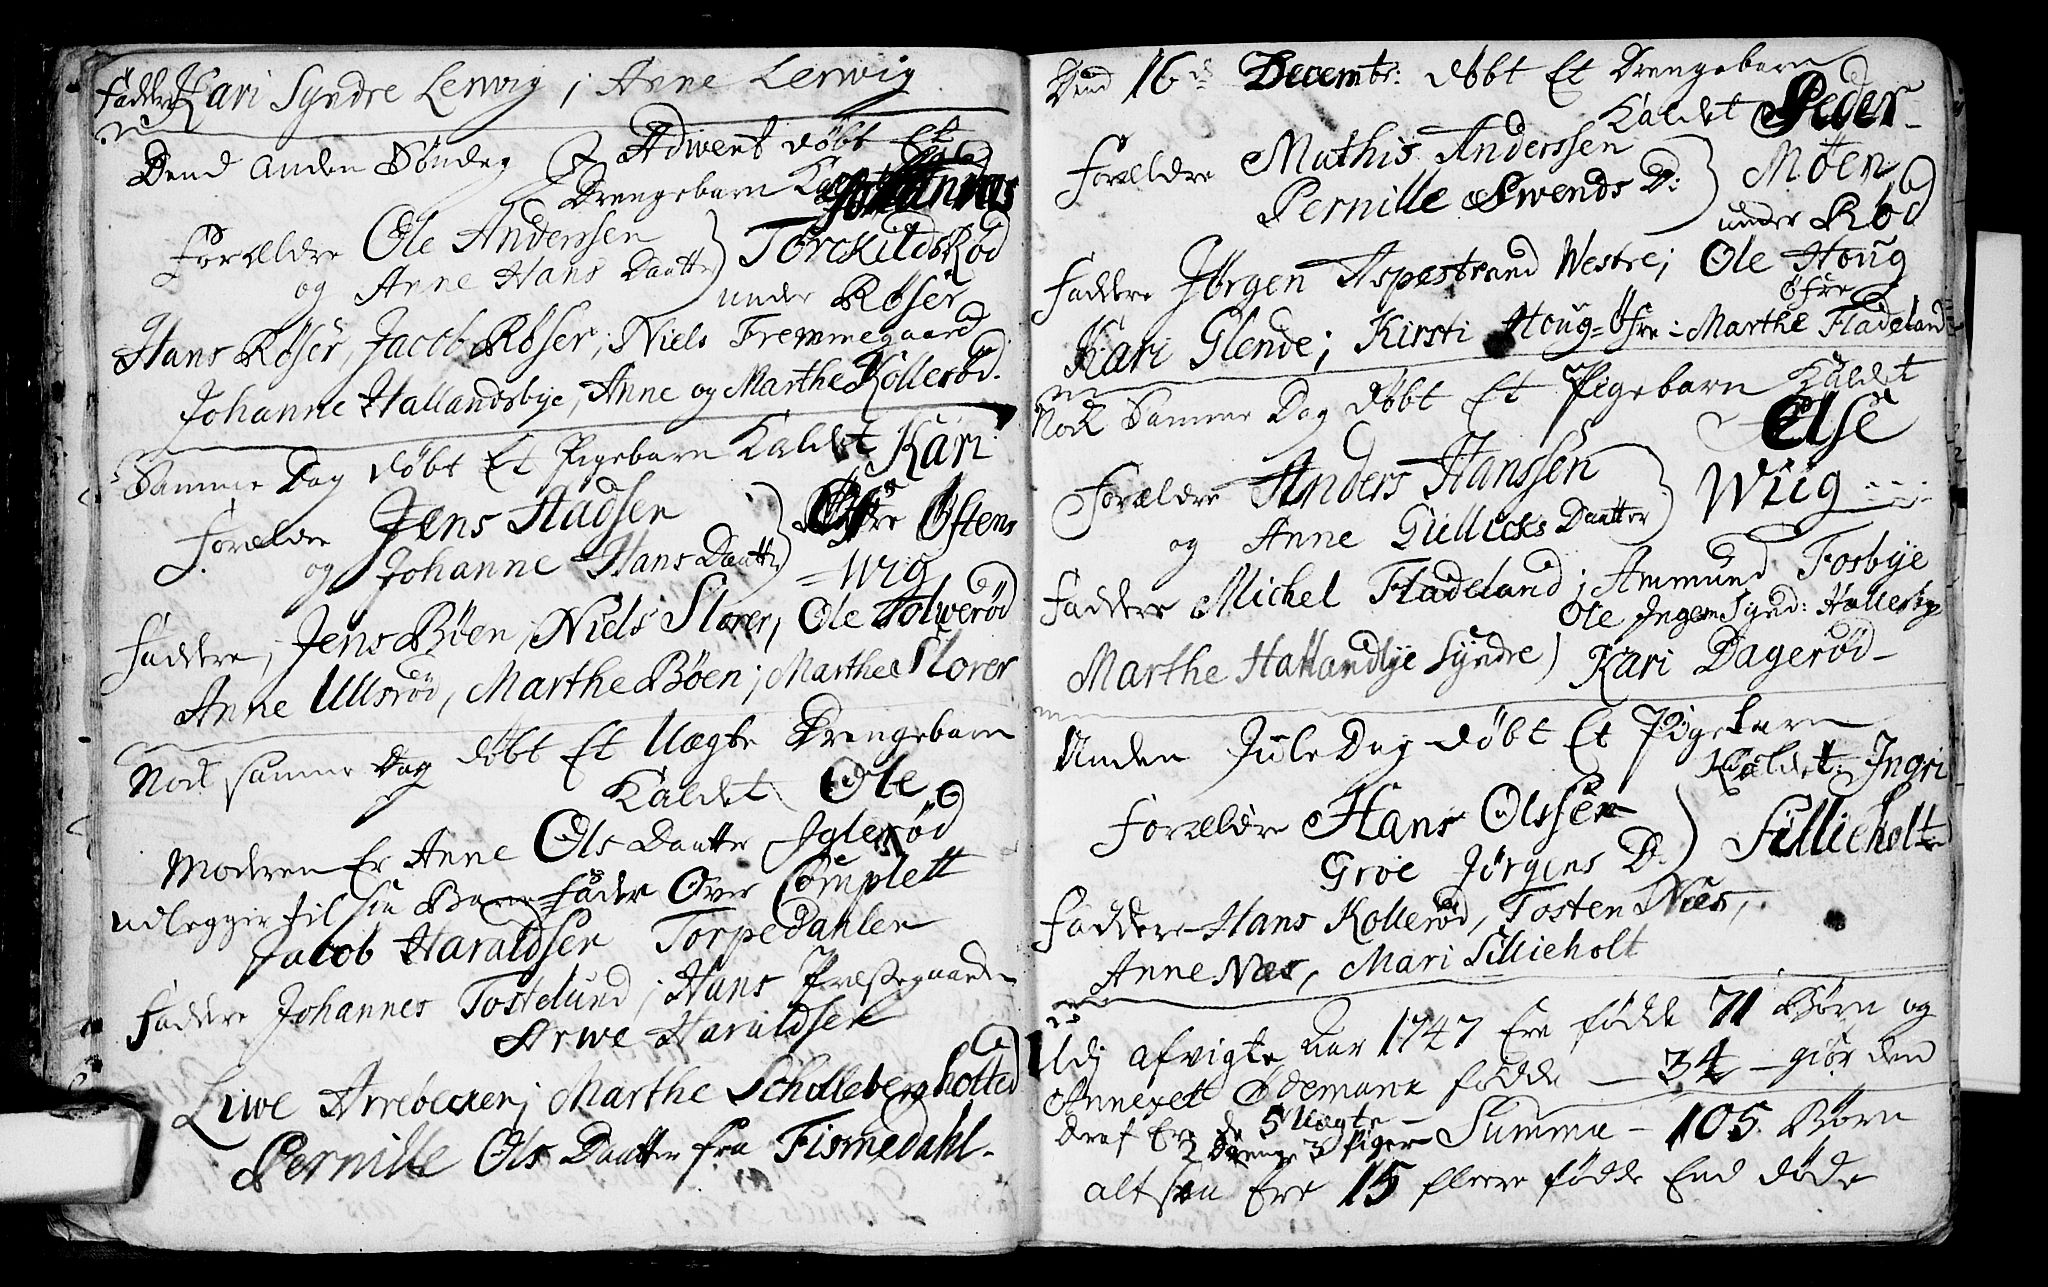 Faddre Kari Syndre Lerwig ; Anne Lerwig
Dend Anden Söndag i Adwent döbt Et
Drengebarn Kaldet Johannes
Forældre Ole Anderssen
og Anne Hans Daatter Torckildsröd
under Röser
Hans Röser, Jacob Röser, Niels Fremmegaard
Johanne Hallandsbye, Anne og Marthe Kollerød.
Samme Dag döbt Et Pigebarn Kaldet Kari
Forældre Jens Hadsen
og Johanne Hans Daatter Østens
=Wig
Faddre, Jens Böen, Niels Slorer, Ole Holwerød
Anne Ullsröd, Marthe Böen; Marthe Slorer
Nok samme Dag döbt Et Uægte Drengebarn
Kaldet Ole
Moderen Er Anne Ols Daatter Igleröd
udlegger til sin Barne=Fader Over Complett
Jacob Haraldsen Torpedahlen
Faddre Johannes Tostelund; Hans Præstegaarden
Arwe Haraldsen
Liwe Arrebecken; Marthe Schulleberg holted
Pernille Ols Daatter fra Tismedahl.
Dend 16de Decembr: döbt Et Drengebarn
Kaldet Peder
Forældre Mathis Anderssen
Pernille Swends D: Möen
under Röd
Faddre Jörgen Aspestrand Westre; Ole Houg
Øfre
Kari Glende; Kirsti Houg=Øfre: Marthe Fladeland
Nok Samme Dag döbt Et Pigebarn Kaldet
Else
Forældre Anders Hanssen
og Anne Gullicks Daatter Wiig
Faddre Michel Fladeland; Ammund Fosbye
Ole Synd: Hallesbye
Marthe Hallandbye Syndre) Kari Dageröd
Anden Jule Dag döbt Et Pigebarn
Kaldet: Ingri
Forældre Hans Olssen
Groe Jörgens D. Sillieholt
Faddre Hans Kolleröd, Tosten Næs,
Anne Næs, Mari Sillieholt
Udj afvigte Aar 1747 Ere födde 71 Börn og
Annexet Ødemark födde — 34 — giör den
Summa — 105 Börn
Draf Ere de 5 Uægte
2 Drenge 3 Piger
altsaa Ere 15 fleere födde End döde